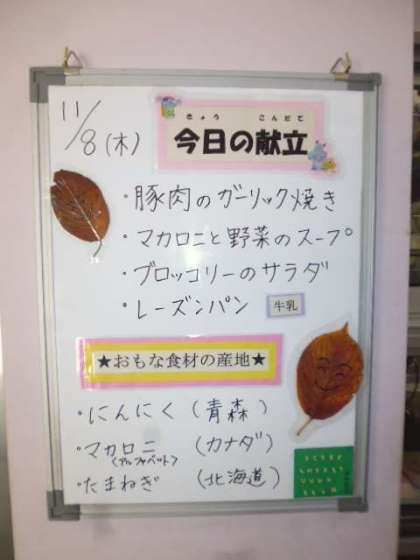 11/8(木)
きょう こんだて
今日の献立
・豚肉のガーリック焼き
・マカロニと野菜のスープ
・ブロッコリーのサラダ
・レーズンパン 牛乳
★おもな食材の産地★
・にんにく(青森)
・マカロニ(カナダ)
<アルファベット>
・たまねぎ(北海道)